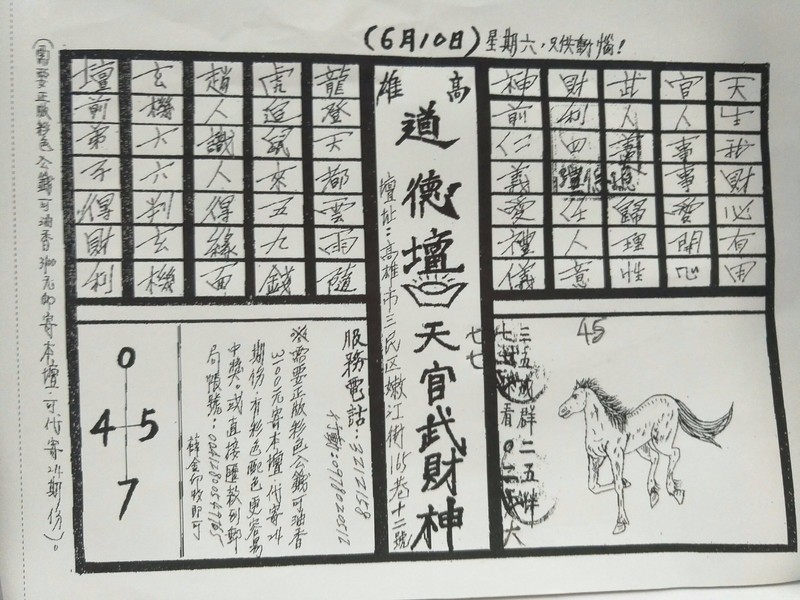 (6月10日)星期六，只供解惱！
天生我財必有用
官人事事愛開心
武人講事歸理性
財利四 任人意
神前仁義愛禮儀
高雄
道德壇
天官武財神
壇址：高雄市三民区嫩江街165巷十二號
龍登天都雲雨隨
虎追鼠來五九錢
趙人識人得緣面
玄機六六判玄機
壇前弟子得財利
45
三五成群二五畔
七七
看0二 大
服務電話：3212158
行動：0978020512
※需要正版彩色公籤可油香
3100元寄本壇，代寄24
期份，有彩色配色更容易
中獎。或直接匯款到郵
局帳號：
薛金印收即可
0
4 5
7
(需要正版彩色公籤可油香 元即寄本壇，可代寄24期份)。